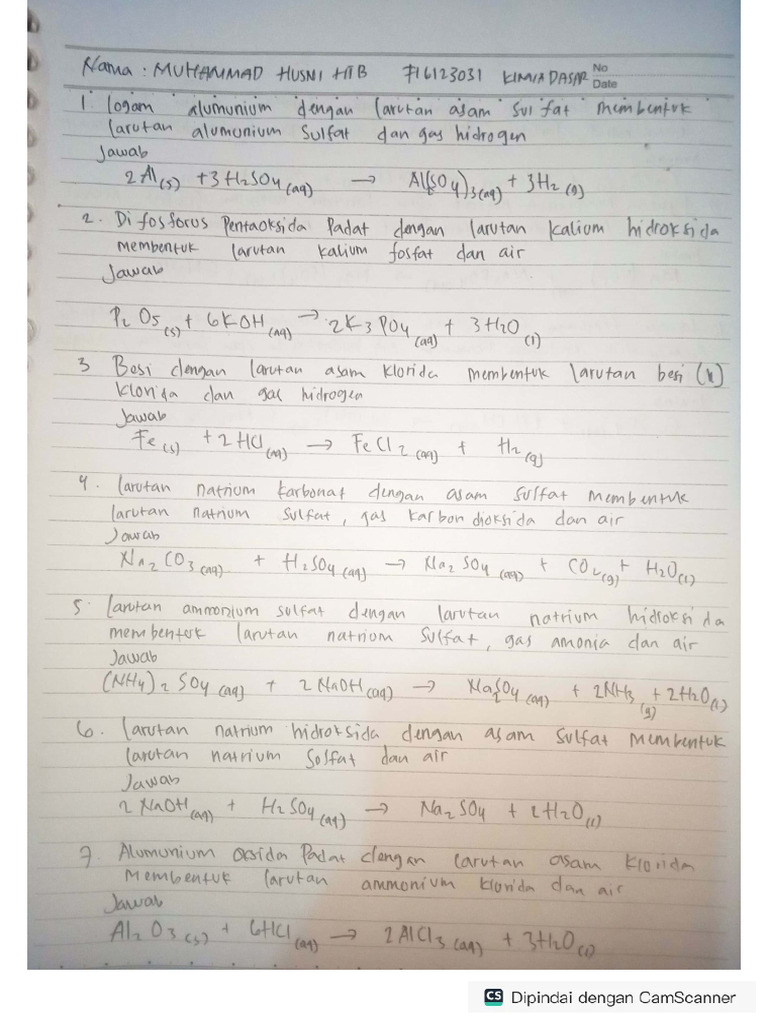 Nama : MUHAMMAD HUSNI HTB 716123031 KIMIA DASAR No
Date
1 logam alumunium dengan larutan asam sulfat membentuk
larutan alumunium sulfat dan gas hidrogen
Jawab
2 Al(s) + 3 H2SO4(aq) → Al2(SO4)3(aq) + 3H2(g)
2. Difosforus Pentaoksida Padat dengan larutan kalium hidroksida
membentuk larutan kalium fosfat dan air
Jawab
P2O5(s) + 6KOH(aq) → 2K3PO4(aq) + 3H2O(l)
3 Besi dengan larutan asam klorida membentuk larutan besi (II)
klorida dan gas hidrogen
Jawab
Fe(s) + 2HCl(aq) → FeCl2(aq) + H2(g)
4. larutan natrium karbonat dengan asam sulfat membentuk
larutan natrium sulfat, gas karbon dioksida dan air
Jawab
Na2CO3(aq) + H2SO4(aq) → Na2SO4(aq) + CO2(g) + H2O(l)
5. larutan ammonium sulfat dengan larutan natrium hidroksida
membentuk larutan natrium sulfat, gas amonia dan air
Jawab
(NH4)2SO4(aq) + 2NaOH(aq) → Na2SO4(aq) + 2NH3(g) + 2H2O(l)
6. larutan natrium hidroksida dengan asam sulfat membentuk
larutan natrium sulfat dan air
Jawab
2NaOH(aq) + H2SO4(aq) → Na2SO4 + 2H2O(l)
7. Alumunium oksida Padat dengan larutan asam klorida
membentuk larutan ammonium klorida dan air
Jawab
Al2O3(s) + 6HCl(aq) → 2AlCl3(aq) + 3H2O(l)
CS Dipindai dengan CamScanner